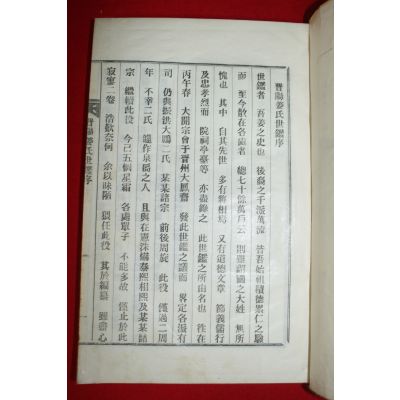 晋陽姜氏世鑑序
世鑑者 吾姜之史也 後裔之千派萬流 皆吾始祖積德累仁之驗
而 至今散在各道者 總七十餘萬戶云 則雖謂國之大姓 無所
愧也 其中 自其先世 多有將相焉 又有道德文章 節義儒行
及忠孝烈 院祠亭臺等 亦盡錄之 此世鑑之所由名也 往在
丙午春 大開宗會于晉州大鳳齋 發此世鑑之議而 界定各派有
司 仍與振洪大鵬二氏 某某諸宗 前後周旋 此役 僅過二周
年 不幸二氏 遽作泉臺之人 且與在憲洙 秦熙相熙及某某諸
宗 繼續此役 今已五個星霜 各處單子 不能多收 僅止於此
寂寥二卷 浩歎奈何 余以昧陋 猥任此役 其於編纂 雖盡心
晋陽姜氏世鑑序